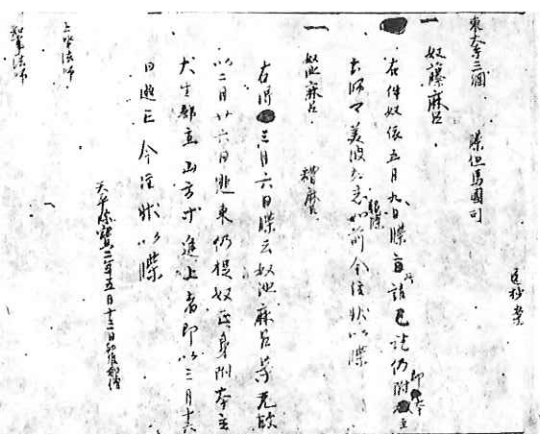 返抄案
東大寺三綱 牒但馬國司
一
奴藤麻呂
右件奴依五月九日牒旨請已訖仍附即本主
部下美波
前今注状以牒
一
奴池麻呂 糟麻呂
右得三月六日牒云奴池麻呂等无故
以二月廿六日逃来仍捉奴正身附本主
大生部直山方等進上者即以三月十六
日逃亡今注状以牒
天平勝寳二年五月十三日
上座法師
知事法師